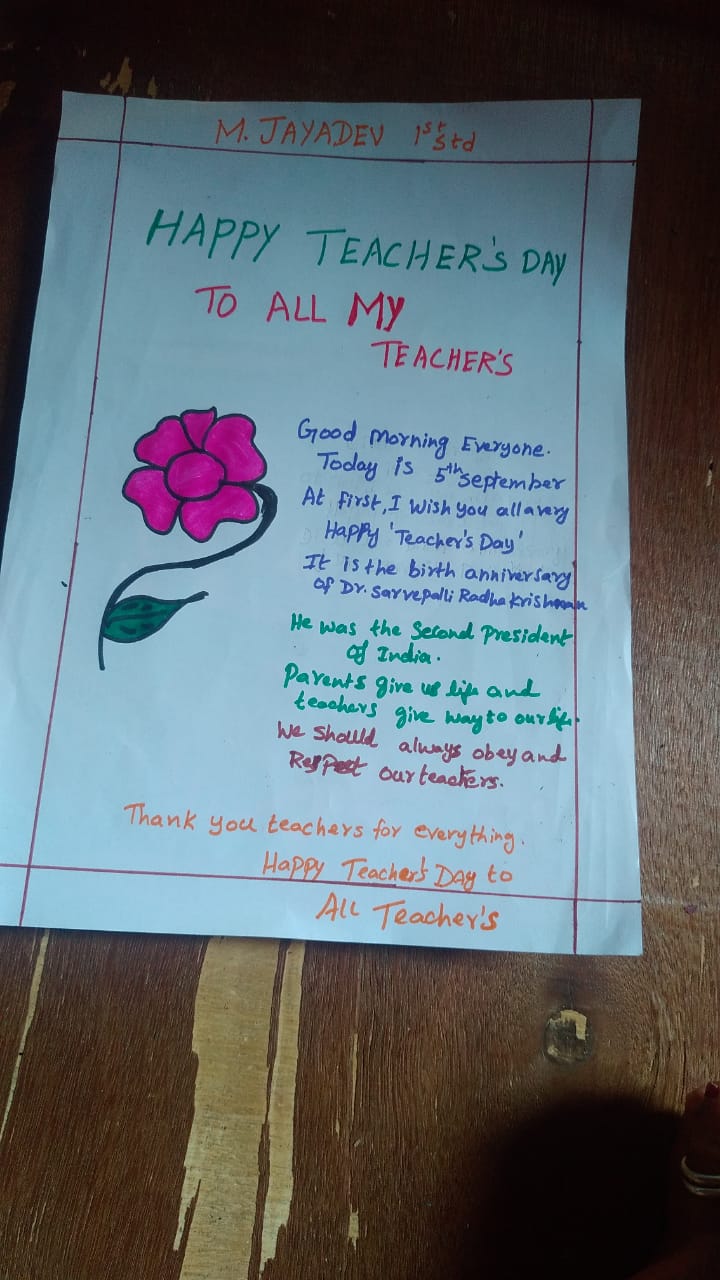 M. JAYADEV 1st Std
HAPPY TEACHER'S DAY
TO ALL MY
TEACHER'S
Good morning Everyone.
Today is 5th September
At first, I wish you all a very
Happy 'Teacher's Day'
It is the birth anniversary
of Dr. Sarvepalli Radha krishnan
He was the Second President
of India.
Parents give us life and
teachers give way to our life.
We should always obey and
Respect our teachers.
Thank you teachers for everything.
Happy Teacher's Day to
All Teacher's